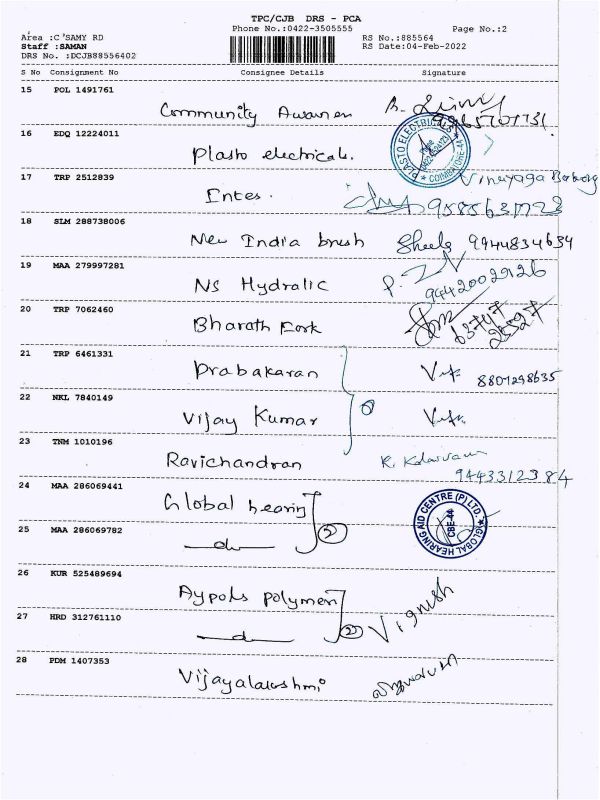 TPC/CJB DRS - PCA
Phone No.:0422-3505555 Page No.:2
Area :C'SAMY RD RS No.:885564
Staff :SAMAN RS Date:04-Feb-2022
DRS No. :DCJB88556402
S No Consignment No Consignee Details Signature
15 POL 1491761
Community Awaren
16 EDQ 12224011
Plasto electricals.
PLASTO ELECTRICALS
COIMBATORE-44
17 TRP 2512839
Entes. Vinayaga
18 SLM 288738006
New India brush Sheela 9944834634
19 MAA 279997281
NS Hydralic 9442002926
20 TRP 7062460
Bharath Fork 63747
21 TRP 6461331
Prabakaran 8807298635
22 NKL 7840149
Vijay Kumar
23 TNM 1010196
Ravichandran 9443312384
24 MAA 286069441
Global hearing
GLOBAL HEARING AID CENTRE (P) LTD.
CBE-44
25 MAA 286069782
do 2
26 KUR 525489694
Aypols polymer Vignesh
27 HRD 312761110
do 2
28 PDM 1407353
Vijayalakshmi